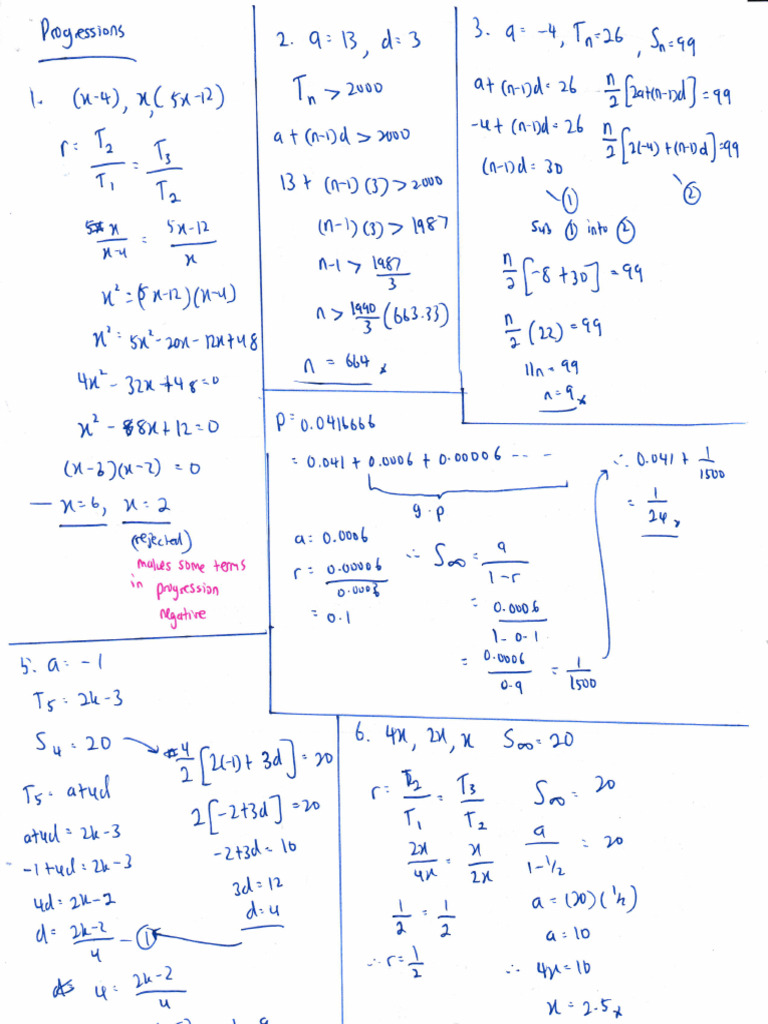 Progressions
1. (x-4), x, (5x-12)
r = T₂/T₁ = T₃/T₂
x/x-4 = 5x-12/x
x² = (5x-12)(x-4)
x² = 5x² - 20x - 12x + 48
4x² - 32x + 48 = 0
x² - 8x + 12 = 0
(x-6)(x-2) = 0
x = 6, x = 2
(rejected)
makes some terms
in progression
negative
2. a = 13, d = 3
Tn > 2000
a + (n-1)d > 2000
13 + (n-1)(3) > 2000
(n-1)(3) > 1987
n-1 > 1987/3
n > 1990/3 (663.33)
n = 664
3. a = -4, Tn = 26, Sn = 99
a + (n-1)d = 26
-4 + (n-1)d = 26
(n-1)d = 30
①
n/2 [2a+(n-1)d] = 99
n/2 [2(-4)+(n-1)d] = 99
②
Sub ① into ②
n/2 [-8+30] = 99
n/2 (22) = 99
11n = 99
n = 9
P = 0.0416666
= 0.041 + 0.0006 + 0.00006 -- - -
g.p
a = 0.0006
r = 0.00006/0.0006
= 0.1
∴ S∞ = a/1-r
= 0.0006/1-0.1
= 0.0006/0.9 = 1/1500
∴ 0.041 + 1/1500
= 1/24
5. a = -1
T₅ = 2k-3
S₄ = 20
T₅ = a+4d
a+4d = 2k-3
-1+4d = 2k-3
4d = 2k-2
d = 2k-2/4 - ①
4 = 2k-2/4
4/2 [2(-1) + 3d] = 20
2[-2+3d] = 20
-2+3d = 10
3d = 12
d = 4
6. 4x, 2x, x S∞ = 20
r = T₂/T₁ = T₃/T₂
2x/4x = x/2x
1/2 = 1/2
∴ r = 1/2
S∞ = 20
a/1-1/2 = 20
a = (20)(1/2)
a = 10
∴ 4x = 10
x = 2.5